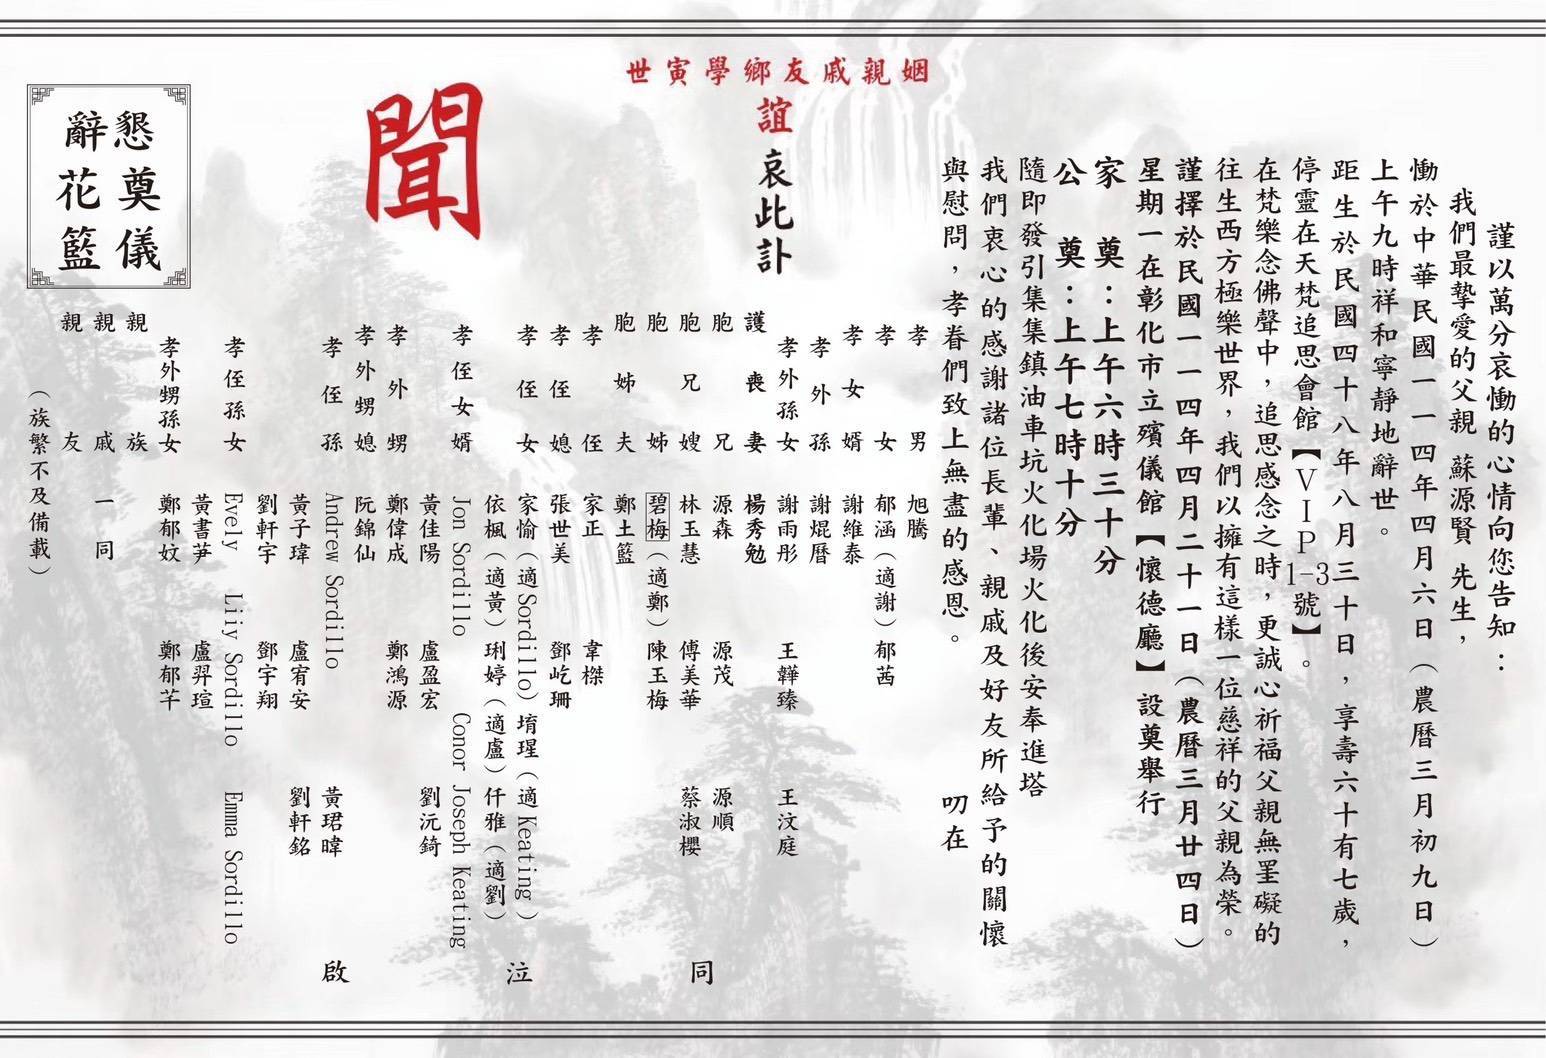 謹以萬分哀慟的心情向您告知：
我們最摯愛的父親 蘇源賢 先生，
慟於中華民國一一四年四月六日（農曆三月初九日）
上午九時祥和寧靜地辭世。
距生於民國四十八年八月三十日，享壽六十有七歲，
停靈在天梵追思會館【VIP1-3號】。
在梵樂念佛聲中，追思感念之時，更誠心祈福父親無罣礙的
往生西方極樂世界，我們以擁有這樣一位慈祥的父親為榮。
謹擇於民國一一四年四月二十一日（農曆三月廿四日）
星期一在彰化市立殯儀館【懷德廳】設奠舉行
家 奠：上午六時三十分
公 奠：上午七時十分
隨即發引集集鎮油車坑火化場火化後安奉進塔
我們衷心的感謝諸位長輩、親戚及好友所給予的關懷
與慰問，孝眷們致上無盡的感恩。 叨在
姻親戚友鄉學寅世
誼 哀此訃
聞
孝男 旭騰
孝女 郁涵（適謝） 郁茜
孝女婿 謝維泰
孝外孫 謝焜曆
孝外孫女 謝雨彤 王韡臻 王汶庭
護喪妻 楊秀勉
胞兄 源森 源茂 源順
胞兄嫂 林玉慧 傅美華 蔡淑櫻
胞姊 碧梅（適鄭） 陳玉梅
胞姊夫 鄭土籃
孝侄 家正 韋榤
孝侄媳 張世美 鄧屹珊
孝侄女 家愉（適/Sordillo） 堉瑆（適 Keating）
依楓（適黃） 琍婷（適盧） 仟雅（適劉）
孝侄女婿 Jon Sordillo Conor Joseph Keating
黃佳陽 盧盈宏 劉沅錡
孝外甥 鄭偉成 鄭鴻源
孝外甥媳 阮錦仙
孝侄孫 Andrew Sordillo 黃珺暐
黃子瑋 盧宥安 劉軒銘
劉軒宇 鄧宇翔
孝侄孫女 Evely Liiy Sordillo Emma Sordillo
黃書芛 盧羿瑄
孝外甥孫女 鄭郁妏 鄭郁芊
親族
親戚 一同
親友
（族繁不及備載）
同 泣 啟
懇辭
奠儀
花籃